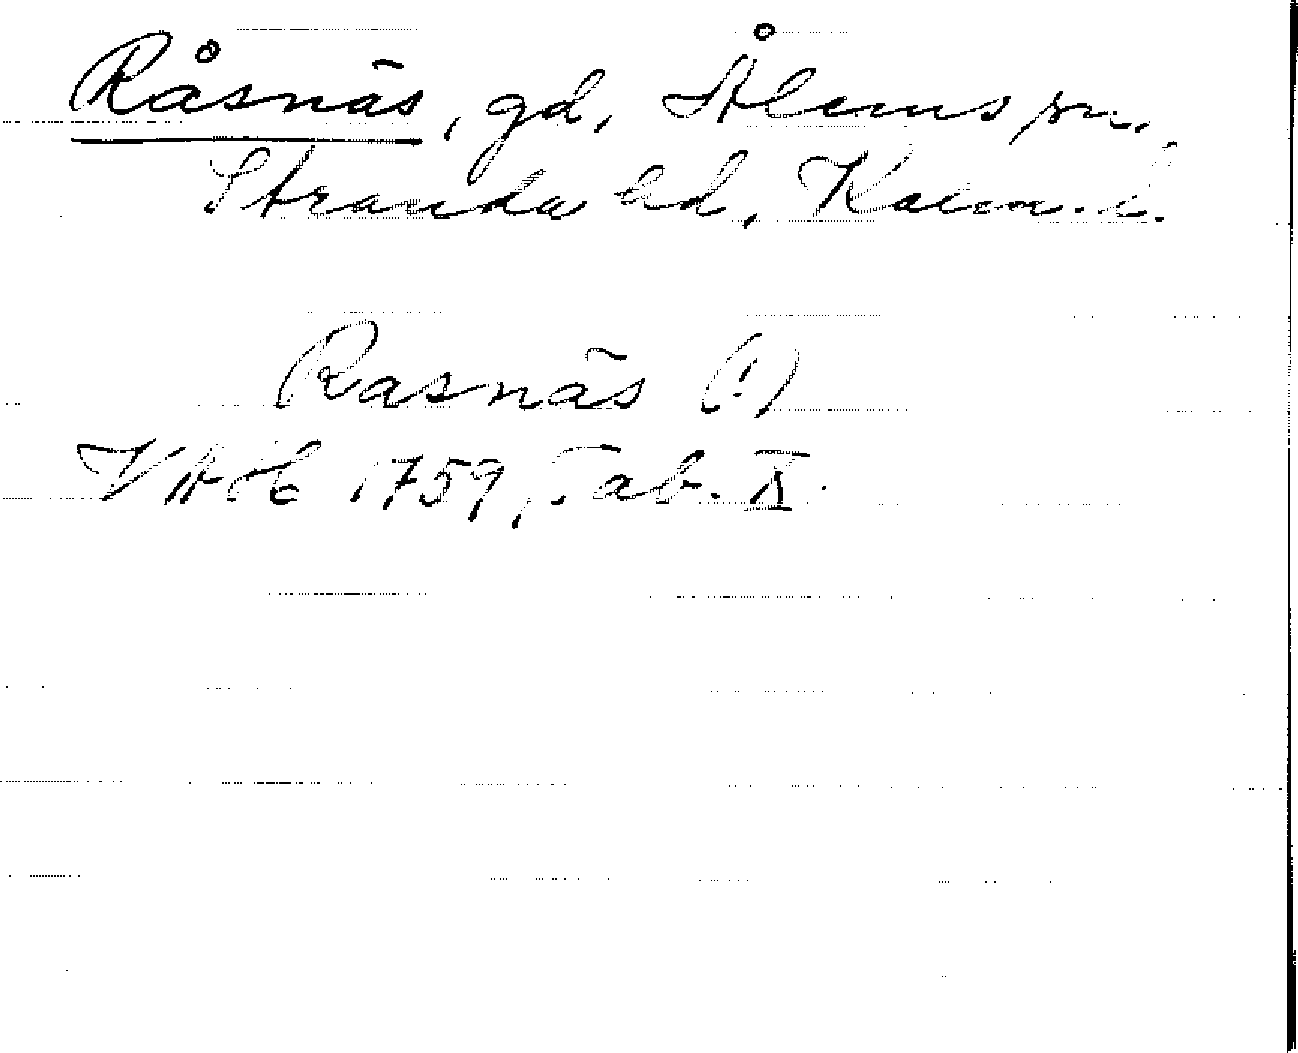 Råsnäs, gd, Ålems sn.,
Stranda hd, Kalm. l.
Rasnäs (!)
VAH 1759, Tab. X.